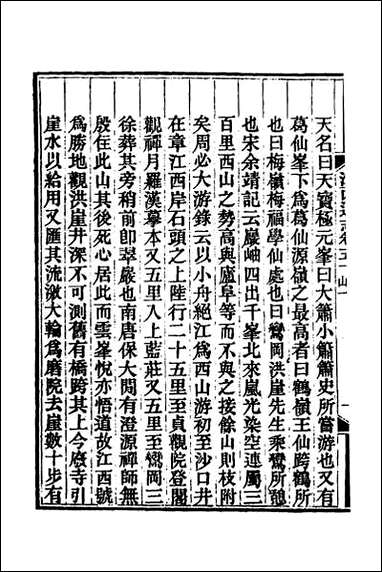 天名曰天寶極元峯曰大蕭小蕭蕭史所嘗游也又有
葛仙峯下爲葛仙源嶺之最高者曰鶴嶺王仙跨鶴所
也曰梅嶺梅福學仙處也曰鸞岡洪崖先生乘鸞所憩
也宋余靖記云巖岫四出千峯北來嵐光染空連屬三
百里西山之勢高與廬阜等而不與之接餘山則枝附
矣周必大游錄云以小舟絕江爲西山游初至沙口井
在章江西岸石頭之上陸行二十五里至貞觀院登閣
觀禪月羅漢摹本又五里入上藍莊又五里至鸞岡三
徐葬其旁稍前卽翠嚴也南唐保大間有澄源禪師無
殷住此山其後死心居此而雲峯悅亦悟道故江西號
爲勝地觀洪崖井深不可測舊有橋跨其上今廢寺引
崖水以給用又匯其流激大輪爲磨院去崖數十步有